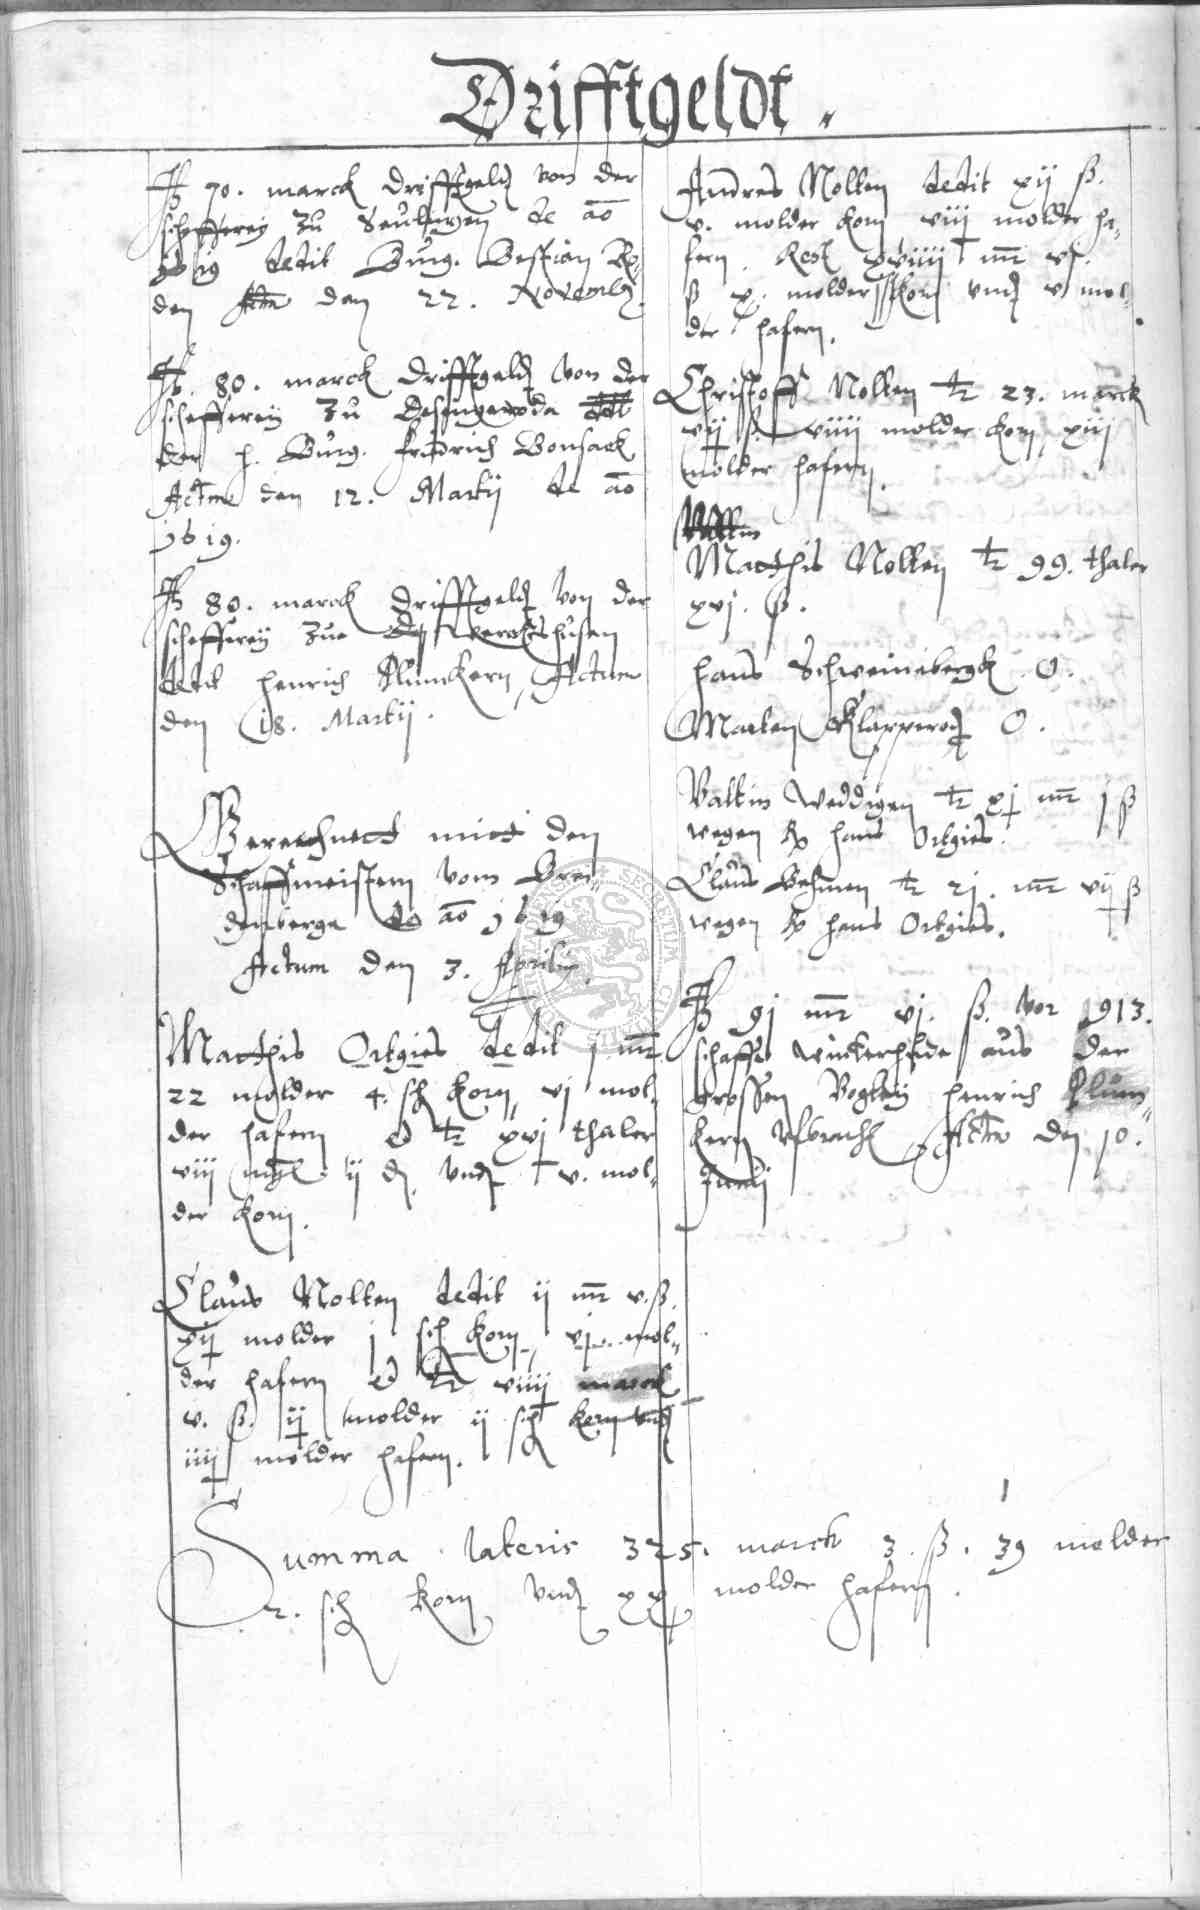 Drifftgeldt.
70. marck Drifftgeld von der
schefferey zu Seulingen de ao
1619 dedit Burg. Bestian Ro-
den Actum den 22. Novemb.
80. marck Drifftgeld von der
schefferey zu Desingeroda
der h. Burg. Fridrich Bonsack
Actum den 12. Martij de ao
1619.
80. marck Drifftgeld von der
schefferey zue Werckshusen
dedit Henrich Klunckern, Actum
den 18. Martij.
Gerechnett mitt den
Schaffmeistern vom Brei-
denberge de ao 1619
Actum den 3. Aprilis.
Matthis Ortgies dedit j mr
22 molder 4. sch korn, vj mol-
der hafern et tr xvj thaler
viij mgl ij d. vnd v. mol-
der korn.
Claus Nolten dedit ij mr v. ß.
xij molder j sch korn, vj. mol-
der hafern et tr viiij marck
v. ß. ij molder ij sch korn vnd
iiij molder hafern.
Andres Nolten dedit xij ß.
v. molder korn viij molder ha-
fern. Rest xviiij mr vj.
ß x. molder korn vnd v mol-
der hafern.
Christoff Nolten tr 23. marck
vij ß. viiij molder korn, xiij
molder hafern.
Matthis Nolten tr 99. thaler
xvj. ß.
Hans Schweinebergk 0.
Marten Klapprod 0.
Valtin Weddigen tr xj mr j ß
wegen Hans Ortgies.
Claus Behmen tr 21. mr vij ß
wegen Hans Ortgies.
91 mr vj. ß. vor 1913.
schaffe aus der
grossen Vogtey Henrich Klun-
kern Actum den 10.
Junij
Summa lateris 325. marck 3. ß. 39 molder
2. sch korn vnd xx molder hafern.